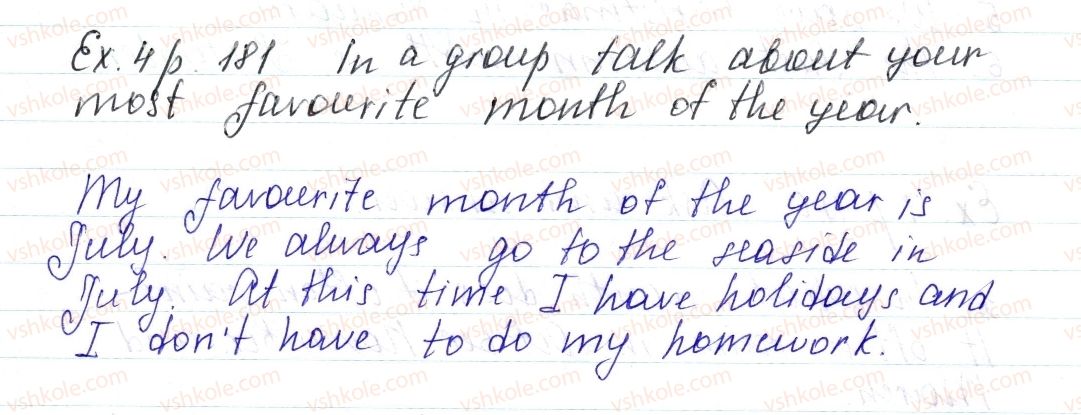 Ex. 4 p. 181 In a group talk about your
most favourite month of the year.
My favourite month of the year is
July. We always go to the seaside in
July. At this time I have holidays and
I don't have to do my homework.